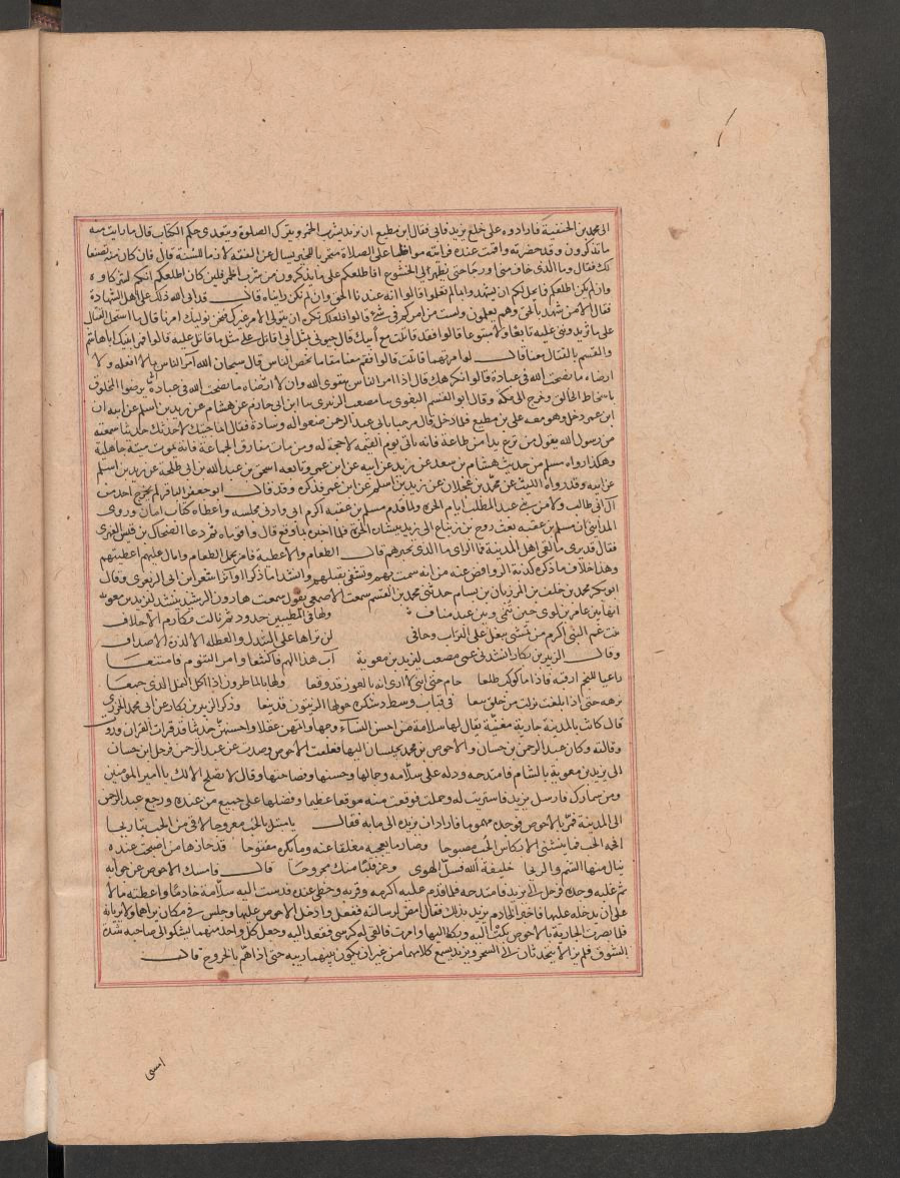 الى محمد بن الحنفية فارادوه على خلع يزيد فابى فقال ابن مطيع ان يزيد يشرب الخمر ويترك الصلوة ويتعدى حكم الكتاب قال ما رايت منه
ما تذكرون وقد حضرته واقمت عنده فرايته مواظبا على الصلاة متحريا للخير يسال عن الفقه لازما للسنة قال فان كان منه تصنعا
لك فقال وما الذى خاف منى اورجا حتى يظهر الى الخشوع افاطلعكم على ما تذكرون من شرب الخمر فلين كان اطلعكم انكم لشركاوه
وان لم يكن اطلعكم فما يحل لكم ان تشهدوا بما لم تعلموا قالوا انه عندنا الحق وان لم نكن رايناه قال قد ابى الله ذلك على اهل الشهادة
فقال الا من شهد بالحق وهم يعلمون ولست من امركم فى شئ قالوا فلعلك تكره ان يتولى الامر غيرك فنحن نوليك امرنا قال ما استحل القتال
على ما تريدونى عليه تابعا ولا متبوعا قالوا فقد قاتلت مع أبيك قال جيونى بمثل ابى اقاتل على مثل ما قاتل عليه قالوا فمر ابنيك اباهاشم
والقسم بالقتال معنا قال لو امرتهما قاتلت قالوا فقم معنا مقاما تحض الناس قال سبحان الله آمر الناس بما لا افعله ولا
ارضاه ما نصحت الله فى عبادة قالوا نكرهك قال اذا امر الناس بتقوى الله وان لا يرضوا المخلوق
باسخاط الخالق وخرج الى مكة وقال ابو القسم البغوى سا مصعب الزبيرى سا ابن ابى حازم عن هشام عن زيد بن اسلم عن ابيه ان
ابن عمر دخل وهو معه على بن مطيع فلما دخل قال مرحبا بابى عبد الرحمن ضعوا له وسادة فقال انما جيتك لاحدثك حديثا سمعته
من رسول الله يقول من نزع يدا من طاعة فانه ياتى يوم القيمة لا حجة له ومن مات مفارق الجماعة فانه يموت ميتة جاهلية
وهكذا رواه مسلم من حديث هشام بن سعد عن زيد عن ابيه عن ابن عمر وتابعه اسحق بن عبد الله بن ابى طلحة عن زيد بن اسلم
عن ابيه وقد رواه الليث عن محمد بن عجلان عن زيد بن اسلم عن ابن عمر فذكره وقد قال ابو جعفر الباقر لم يخرج احد من
آل ابى طالب ولا من بنى عبد المطلب ايام الحرة ولما قدم مسلم بن عقبه اكرم ابى وادنى مجلسه واعطاه كتاب امان وروى
المداينى ان مسلم بن عقبه بعث روح بن زنباع الى يزيد ببشارة الحرة فلما اخبره بما وقع قال واقوماه ثم دعا الضحاك بن قيس الفهرى
فقال قد ترى ما لقى اهل المدينة فما الراى ما الذى يجبرهم قال الطعام والاعطية فامر بحمل الطعام وامال عليهم اعطيتهم
وهذا خلاف ما ذكره كذبة الروافض عنه من انه شمت بهم وتشفى بقتلهم وانشد اما ذكرا او آثرا شعر ابن الزبعرى وقال
ابو بكر محمد بن خلف بن المرزبان بن بسام حدثنى محمد بن القسم سمعت الاصمعى يقول سمعت هارون الرشيد ينشد ليزيد بن معويه
انها بين عامر بن لوى حين تنمى وبين عبد مناف ولها فى المطيبين جدود ثم نالت مكارم الاخلاف
بنت عم النبى اكرم من يمشى بنعل على التراب وحافى لن تراها على التبدل والغلظه الا كدرة الاصداف
وقال الزبير بن بكار انشدنى عمى مصعب ليزيد بن معوية آب هذا الهم فاكتنعا وامر النوم فامتنعا
راعيا للنجم ارقبه فاذا ما كوكب طلعا حام حتى اننى لا ارى انه بالغور قد وقعا ولها بالماطرون اذا اكل النمل الذى جمعا
نزهه حتى اذا بلغت نزلت من خلق بيعا فى قباب وسط دسكرة حولها الزيتون قد ينعا وذكر الزبير بن بكار عن ابى محمد الجزرى
قال كانت بالمدينة جارية مغنية يقال لها سلامة من احسن النساء وجها واتمهن عقلا واحسنهن حديثا قد قرات القران وروت
وقالته وكان عبد الرحمن بن حسان والاحوص بن محمد يجلسان اليها فعلقت الاحوص وصدت عن عبد الرحمن فرحل ابن حسان
الى يزيد بن معوية بالشام فامتدحه ودله على سلامه وجمالها وحسنها وفصاحتها وقال لا تصلح الا لك يا امير المومنين
ومن سمارك فارسل يزيد فاشتريت له وحملت فوقعت منه موقعا عظيما وفضلها على جميع من عنده ورجع عبد الرحمن
الى المدينة فمر بالاحوص فوجده مهموما فاراد ان يزيده الى ما به فقال يا مبتلى بالحب مقروحا لاقى من الحب تباريحا
الجمه الحب فما ينثنى الا بكاس الحب مصبوحا وصار ما يعجبه مغلقا عنه وما يكره مفتوحا قد حازها من اصبحت عنده
ينال منها الشم والريحا خليفة الله فسل الهوى وعز قلبا منك مجروحا قال فامسك الاحوص عن جوابه
ثم غلبه وجده فرحل الى يزيد فامتدحه فلما قدم عليه اكرمه وقربه وحظى عنده فدست اليه سلامة خادما واعطته مالا
على ان يدخله عليها فاخبر الخادم يزيد بذلك فقال امض لرسالته ففعل وادخل الاحوص عليها وجلس فى مكان يراهما ولا يريانه
فلما بصرت الجارية بالاحوص بكت اليه وبكا اليها وامرت فالقى له كرسى فقعد اليه وجعل كل واحد منهما يشكو الى صاحبه شدة
الشوق فلم يزالا يتحدثان الى السحر ويزيد يسمع كلامهما من غير ان يكون بينهما ريبه حتى اذا هم بالخروج قال
امسى